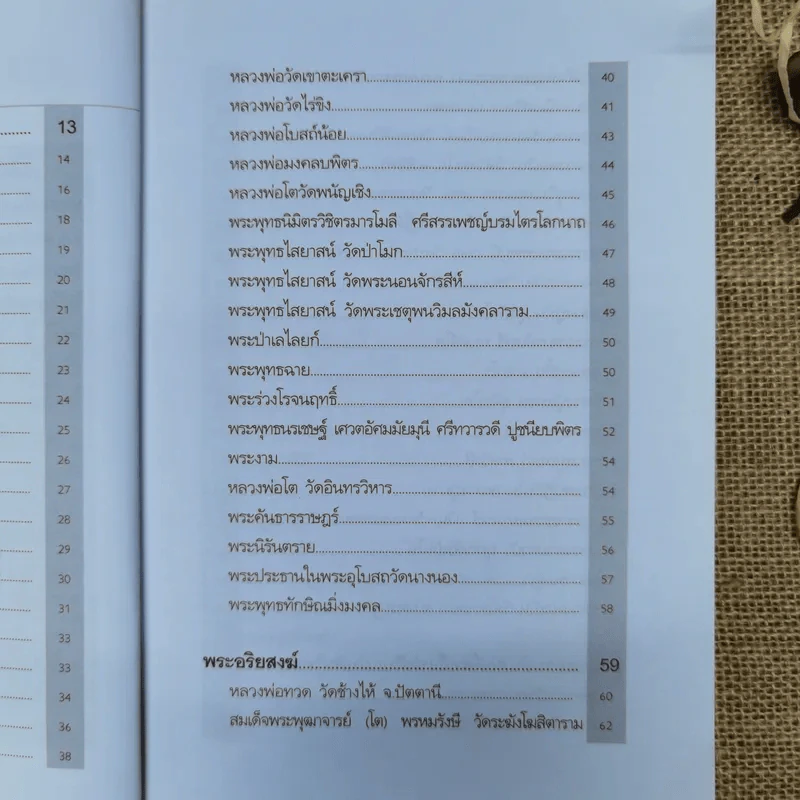 13
14
16
18
19
20
21
22
23
24
25
26
27
28
29
30
31
33
33
34
36
38
หลวงพ่อวัดเขาตะเครา 40
หลวงพ่อวัดไร่ขิง 41
หลวงพ่อโบสถ์น้อย 43
หลวงพ่อมงคลบพิตร 44
หลวงพ่อโตวัดพนัญเชิง 45
พระพุทธนิมิตรวิชิตรมารโมลี ศรีสรรเพชญ์บรมไตรโลกนาถ 46
พระพุทธไสยาสน์ วัดป่าโมก 47
พระพุทธไสยาสน์ วัดพระนอนจักรสีห์ 48
พระพุทธไสยาสน์ วัดพระเชตุพนวิมลมังคลาราม 49
พระป่าเลไลยก์ 50
พระพุทธฉาย 50
พระร่วงโรจนฤทธิ์ 51
พระพุทธนรเชษฐ์ เศวตอัศมมัยมุนี ศรีทวารวดี ปูชนียบพิตร 52
พระงาม 54
หลวงพ่อโต วัดอินทรวิหาร 54
พระคันธารราษฎร์ 55
พระนิรันตราย 56
พระประธานในพระอุโบสถวัดนางนอง 57
พระพุทธทักษิณมิ่งมงคล 58
พระอริยสงฆ์ 59
หลวงพ่อทวด วัดช้างไห้ จ.ปัตตานี 60
สมเด็จพระพุฒาจารย์ (โต) พรหมรังษี วัดระฆังโฆสิตาราม 62